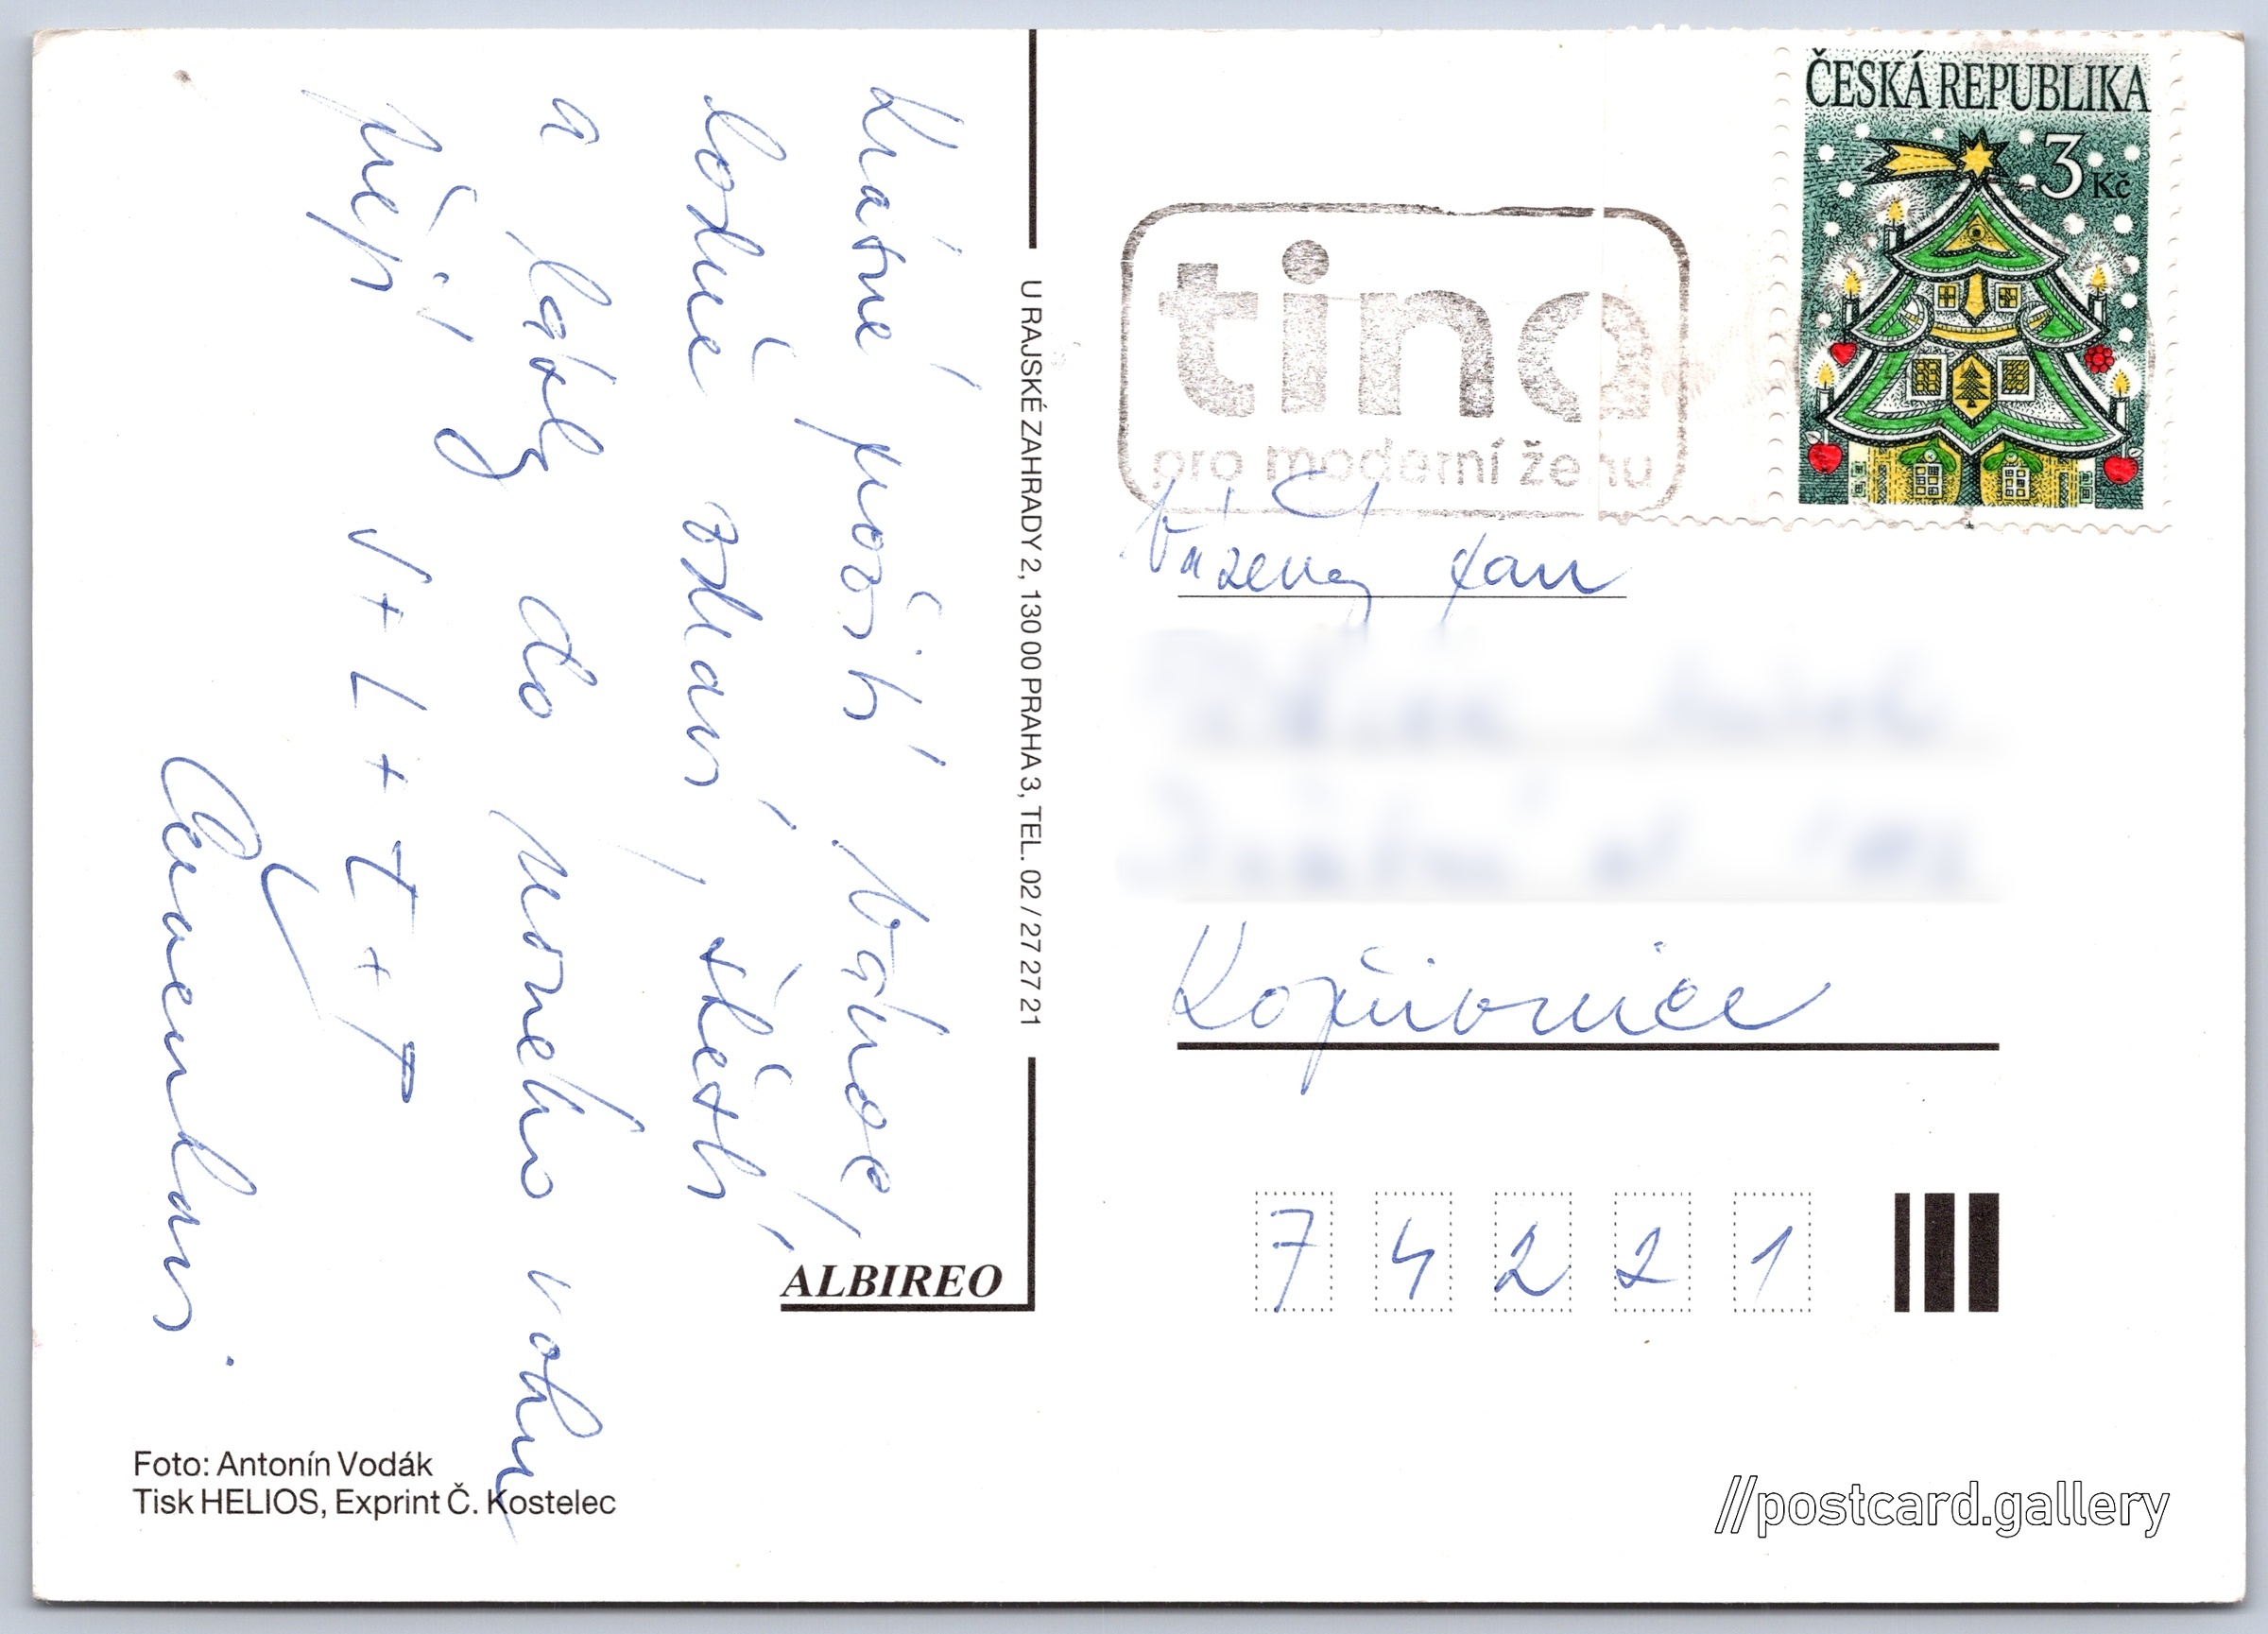 Krásné prožití Vánoc,
hodně zdraví, štěstí,
a lásky do nového roku
přejí
V + L + T + T
ČESKÁ REPUBLIKA
3 Kč
tina
pro moderní ženu
Vážený pan
Kopřivnice
7 4 2 2 1
U RAJSKÉ ZAHRADY 2, 130 00 PRAHA 3, TEL. 02 / 27 27 21
ALBIREO
Foto: Antonín Vodák
Tisk HELIOS, Exprint Č. Kostelec
//postcard.gallery